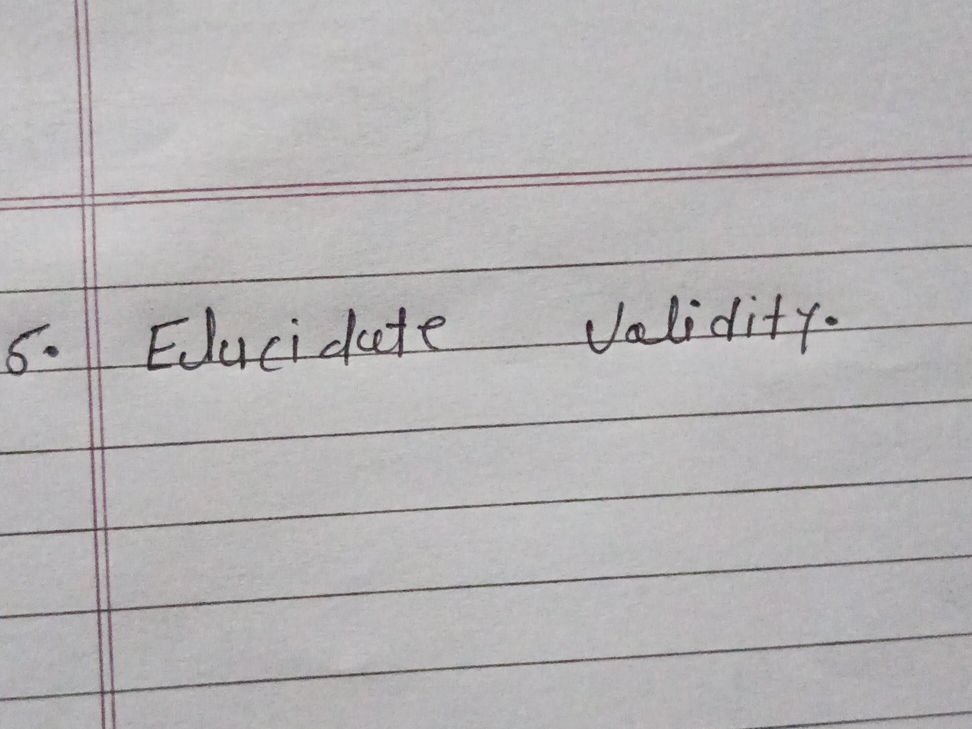 5. Elucidate Validity.